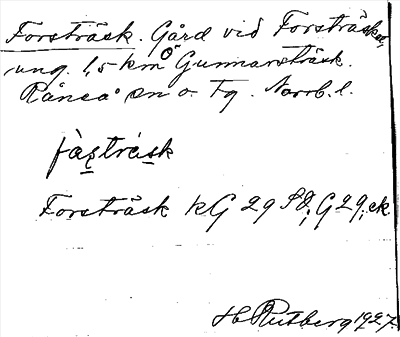 Forsträsk. Gård vid Forsträsket,
ung. 1,5 km Ö Gunnarsträsk.
Råneå sn o. tg. Norrb. l.
fàs̱trás̱k
Forsträsk kG 29 SO; G 29; ek.
H. Rutberg 1927.